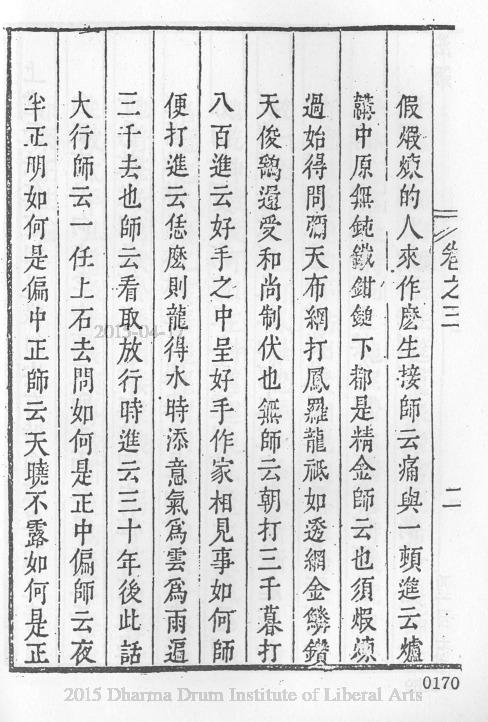 卷之三
二
假煆煉的人來作麽生接師云痛與一頓進云爐
鞴中原無鈍鐵鉗鎚下都是精金師云也須煆煉
過始得問彌天布網打鳳羅龍祇如透網金鱗鑽
天俊鷂還受和尚制伏也無師云朝打三千暮打
八百進云好手之中呈好手作家相見事如何師
便打進云恁麽則龍得水時添意氣爲雲爲雨遍
三千去也師云看取放行時進云三十年後此話
大行師云一任上石去問如何是正中偏師云夜
半正明如何是偏中正師云天曉不露如何是正
0170
2015 Dharma Drum Institute of Liberal Arts